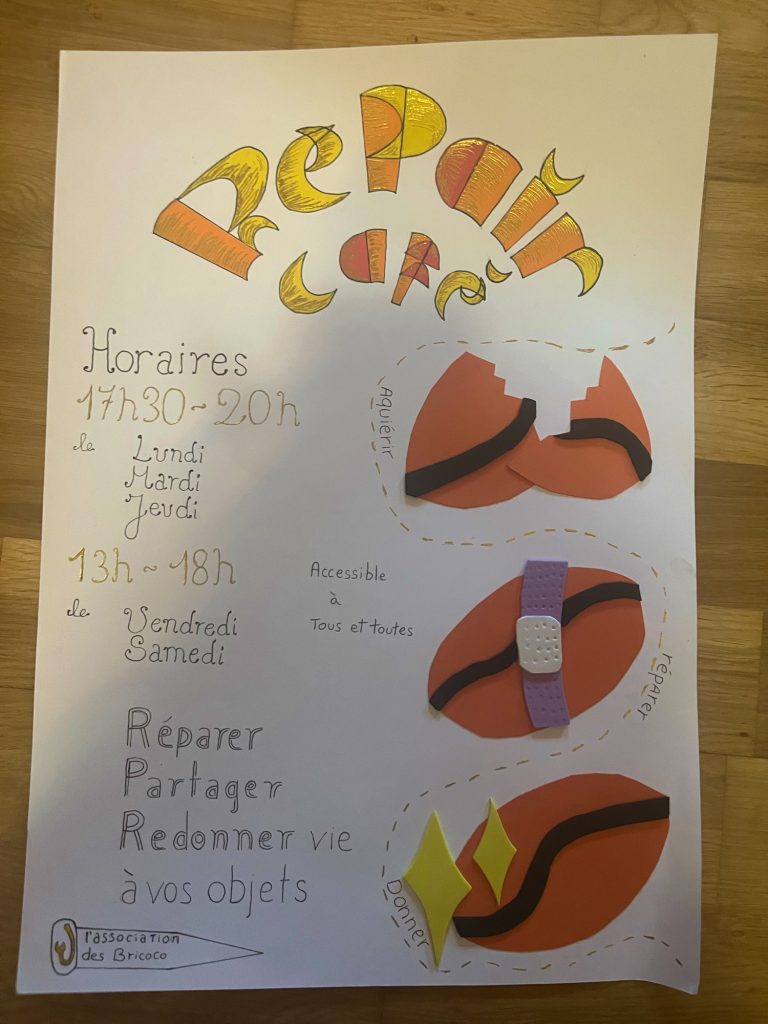 Repair
café
Horaires
17h30~20h
le Lundi
Mardi
Jeudi
13h~18h
le Vendredi
Samedi
Accessible
à
Tous et toutes
Aquiérir
réparer
Donner
Réparer
Partager
Redonner vie
à vos objets
l'association
des Bricoco